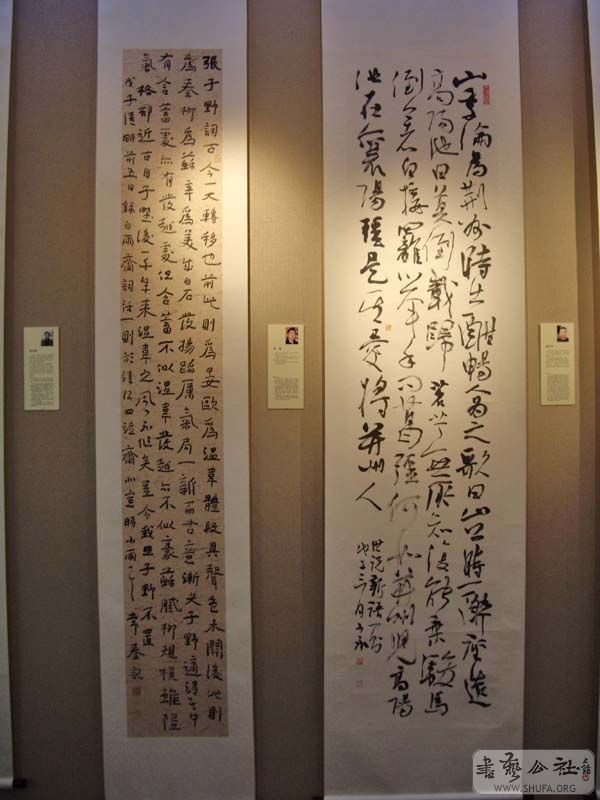 山季倫為荊州時出酣暢人為之歌曰山公時一醉徑造
高陽池日莫倒載歸茗艼無所知復能乘駿馬
倒著白接䍦舉手問葛彊何如并州兒高陽
池在襄陽彊是其愛將并州人
世説新語一則
戊子三月
張子野詞古今一大轉移也前此則為晏歐為溫韋體段具聲色未開後此則
為秦柳為蘇辛為美成白石發揚蹈厲氣局一新而古意漸失子野適得其中
有含蓄處亦有發越處但含蓄不似溫韋發越亦不似豪蘇膩柳規模雖隘
氣格卻近古自子野後一千年來溫韋之風不作矣益令我思子野不置
戊子清明前五日録白雨齋詞話一則於 齋北窗時小雨
書藝公社
WWW.SHUFA.ORG